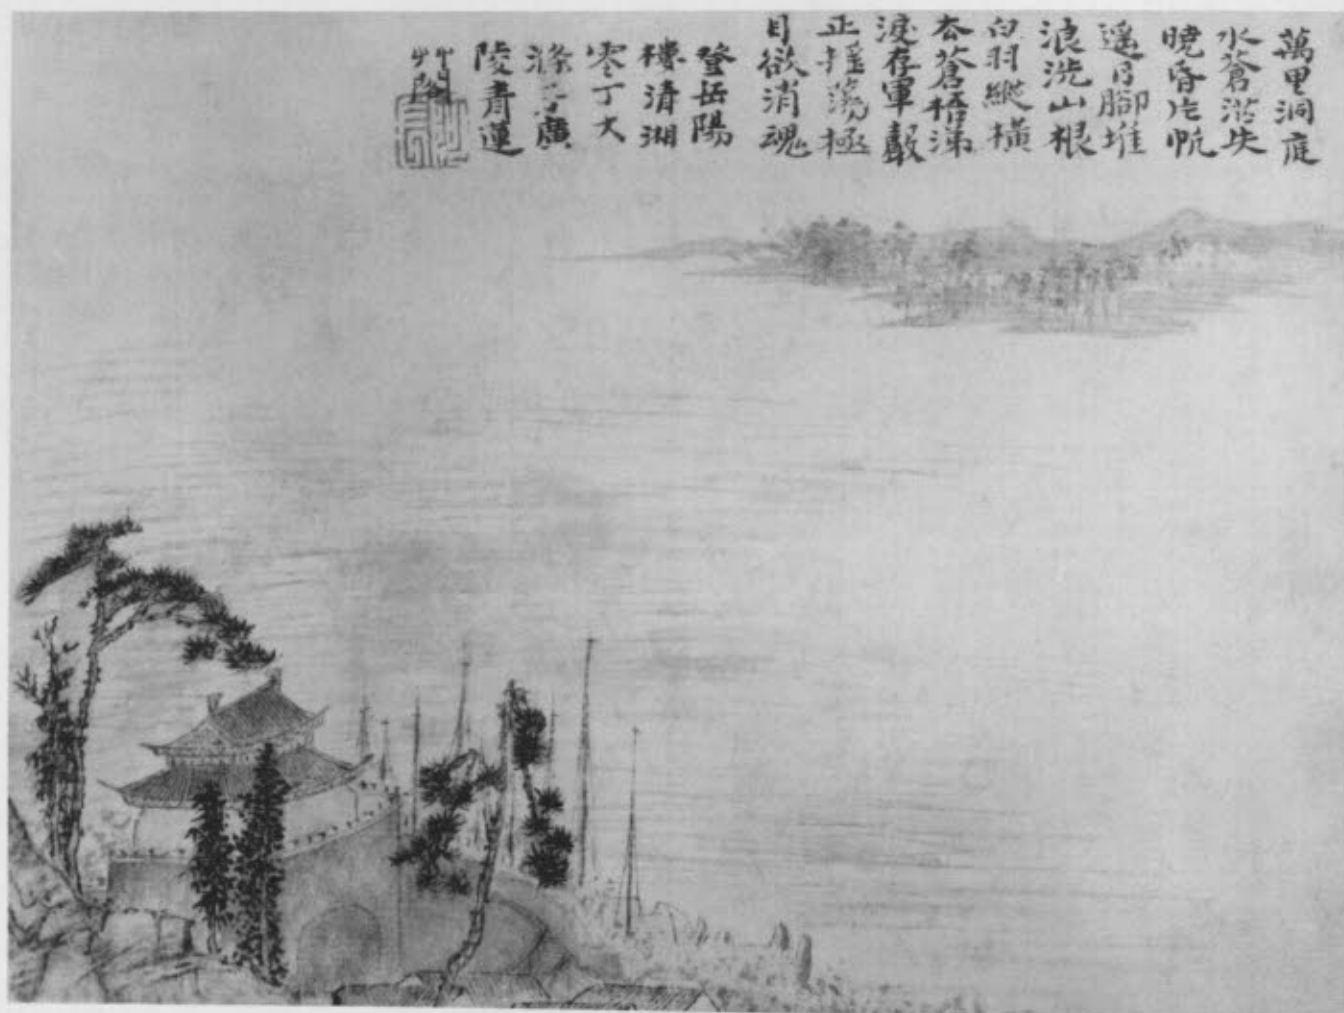 萬里洞庭
水蒼茫失
曉昏片帆
遥日腳堆
浪洗山根
白羽縱橫
去蒼梧涕
淚存軍聲
正搖蕩極
目欲消魂
登岳陽
樓清湘
零丁大
滌子廣
陵青蓮
草閣